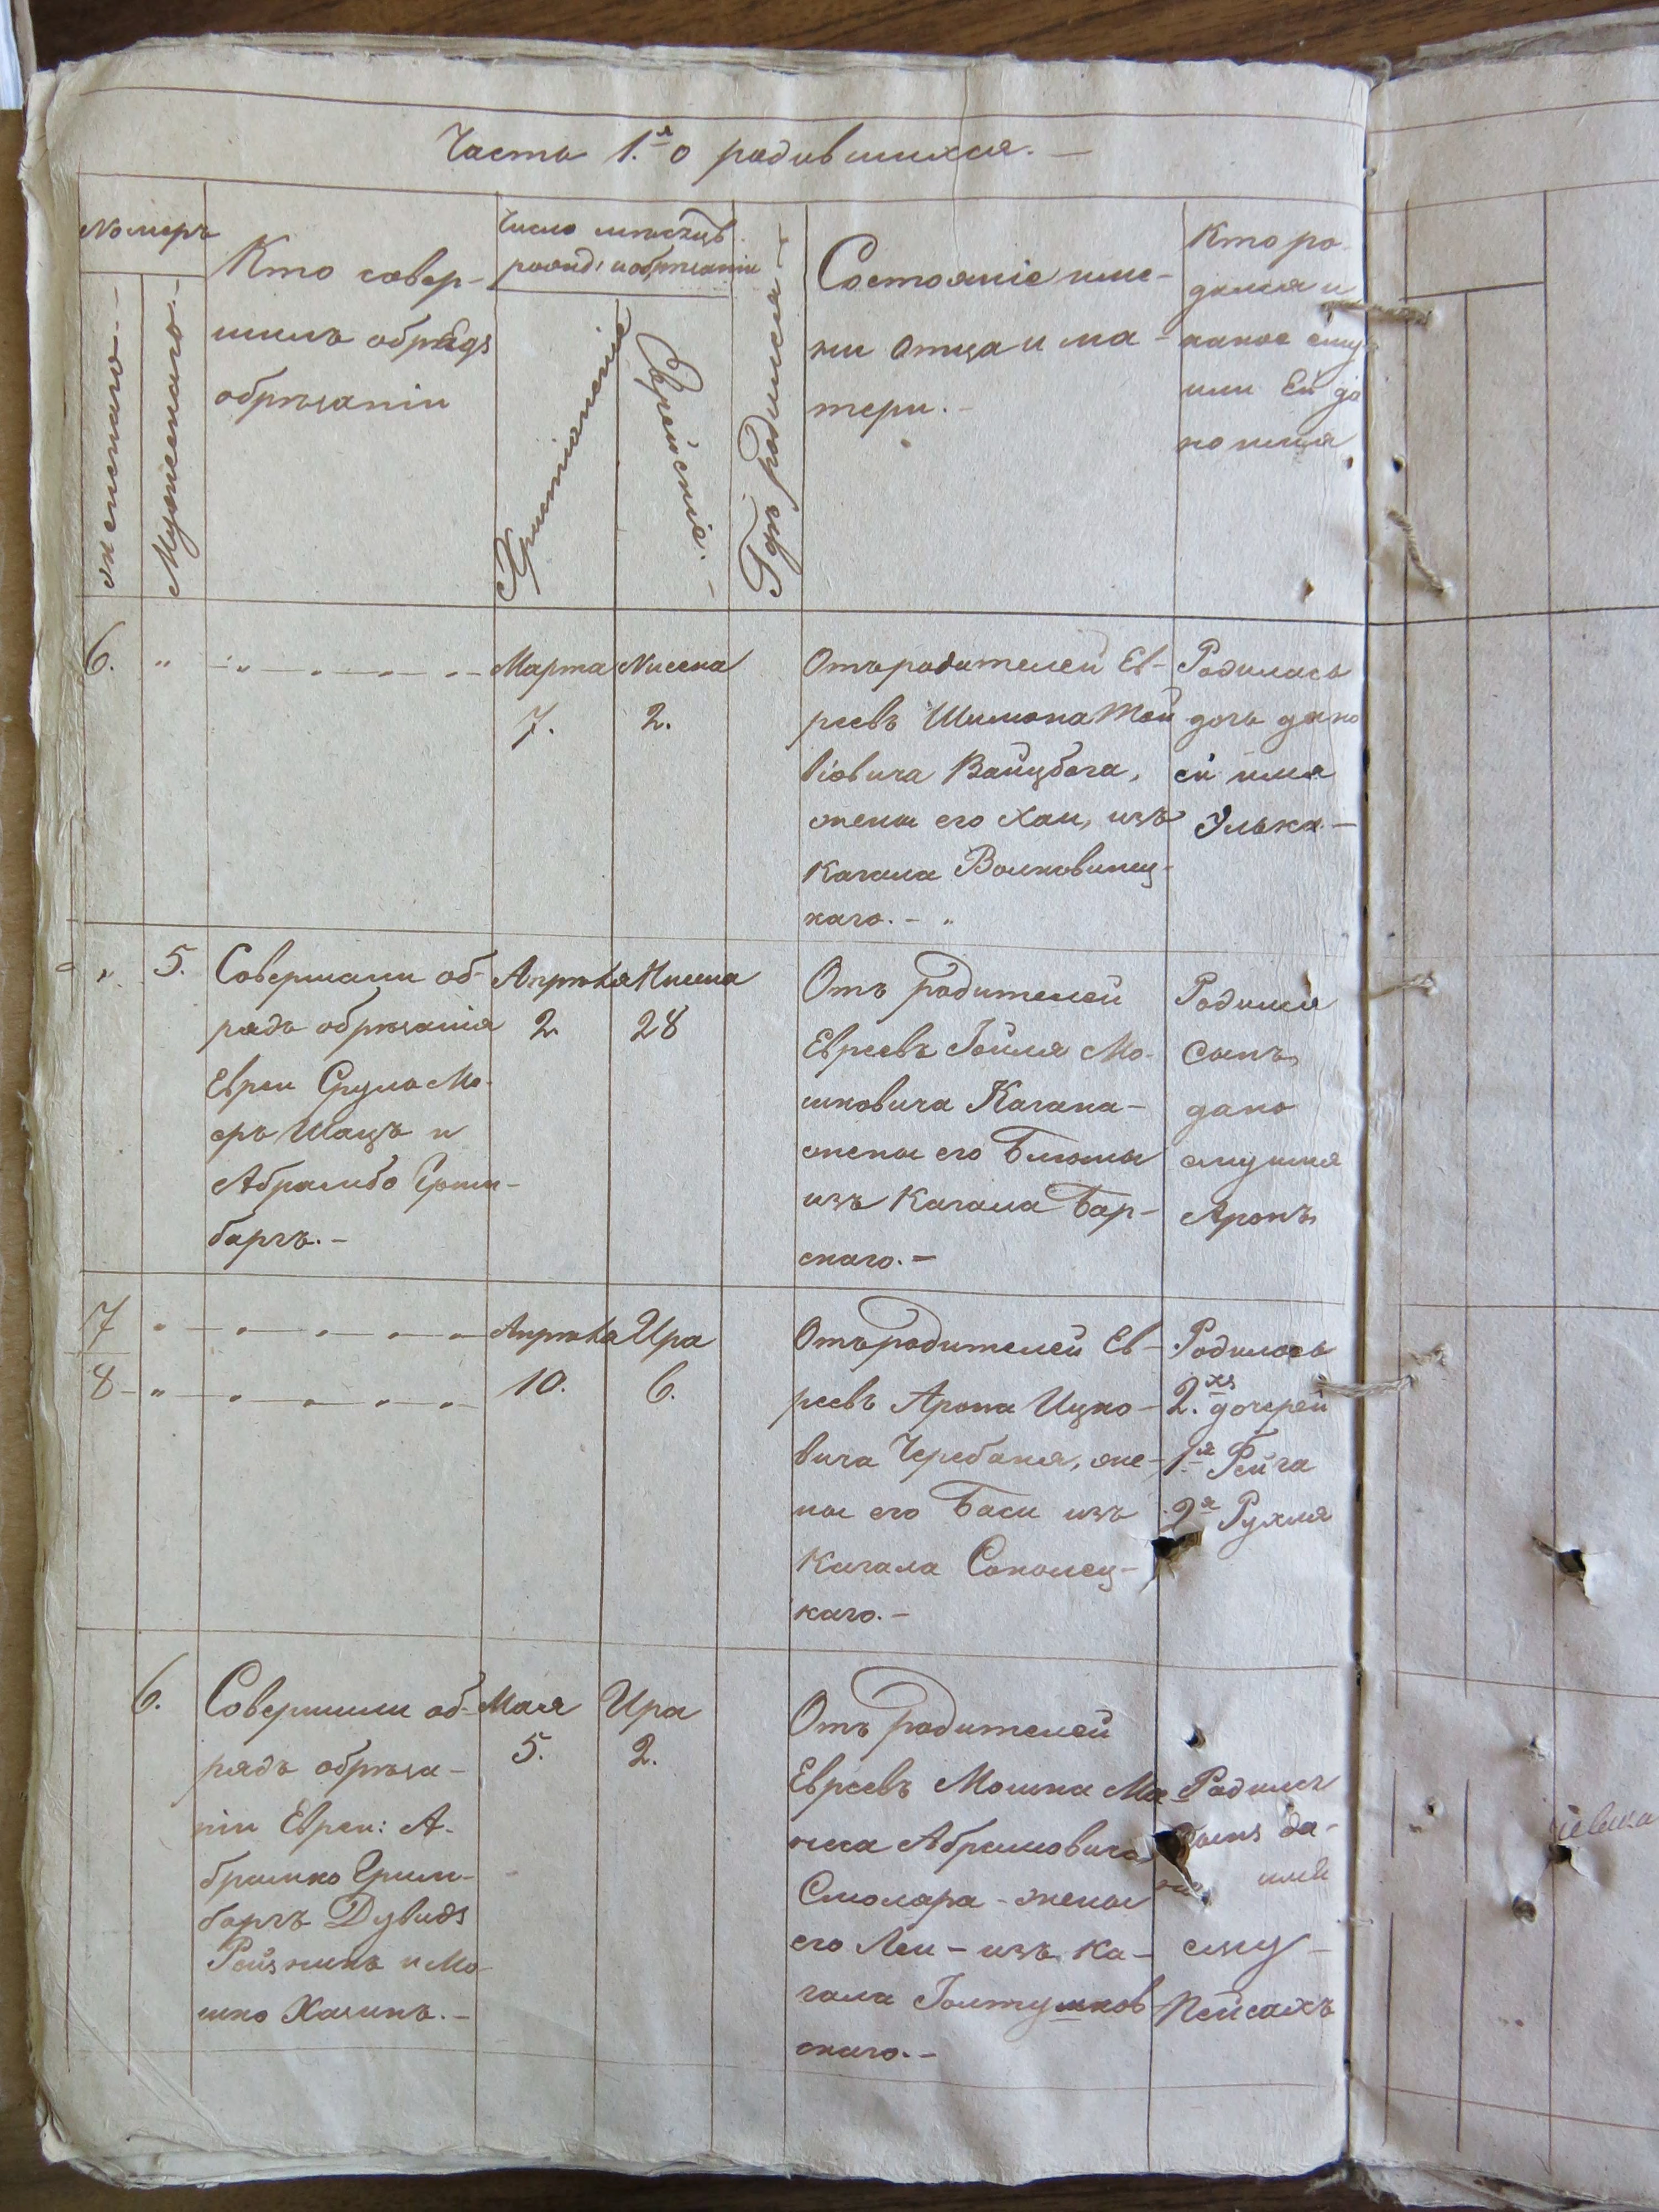 Часть 1.я о родившихся. —
Номеръ
женскаго —
Мужескаго —
Кто совер-
шилъ обрядъ
обрѣзанія
Число мѣсяцъ
рожд: и обрѣзанія
Христіянскіе
Еврейскіе. —
Гдѣ родился —
Состояніе име-
ни отца и ма-
тери. —
Кто ро-
дился и
какое ему
или Ей да
но имя
6. „ „ — . — . — . —
Марта
7.
Нисена
2.
Отъ родителей Ев-
реевъ Шимона
віовича Вайцбога,
жены его Хаи, изъ
Кагала Волковинец-
каго. — „
Родилась
дочь дано
ей имя
Элька —
„ 5.
Совершали об-
рядъ обрѣзанія
Евреи Сруль Ме-
еръ Шацъ и
Абрамко Грин-
баргъ. —
Апрѣля
2.
Нисена
28
Отъ родителей
Евреевъ Гойля Мо-
шковича Кагана —
жены его Блюмы
изъ Кагала Бар-
скаго. —
Родился
сынъ
дано
ему имя
Аронъ
7 „ — „ — . — . — . —
8 — „ — . — . — . — . —
Апрѣля
10.
Ира
6.
Отъ родителей Ев-
реевъ Арона Ицко-
вича Черебаня, же-
ны его Баси изъ
Кагала Соколец-
каго. —
Родилось
2.хъ дочерей
1я Фейга
2я Рухля
6.
Совершили об-
рядъ обрѣза-
нія Евреи: А-
брамко Грин-
баргъ Дувидъ
Рейзникъ и Мо-
шко Хазинъ. —
Мая
5.
Ира
2.
Отъ родителей
Евреевъ Мошка Ма-
неса Абрамовича
Смоляра — жены
его Леи — изъ Ка-
гала
скаго. —
Родился
сынъ да-
но имя
ему —
Пейсахъ